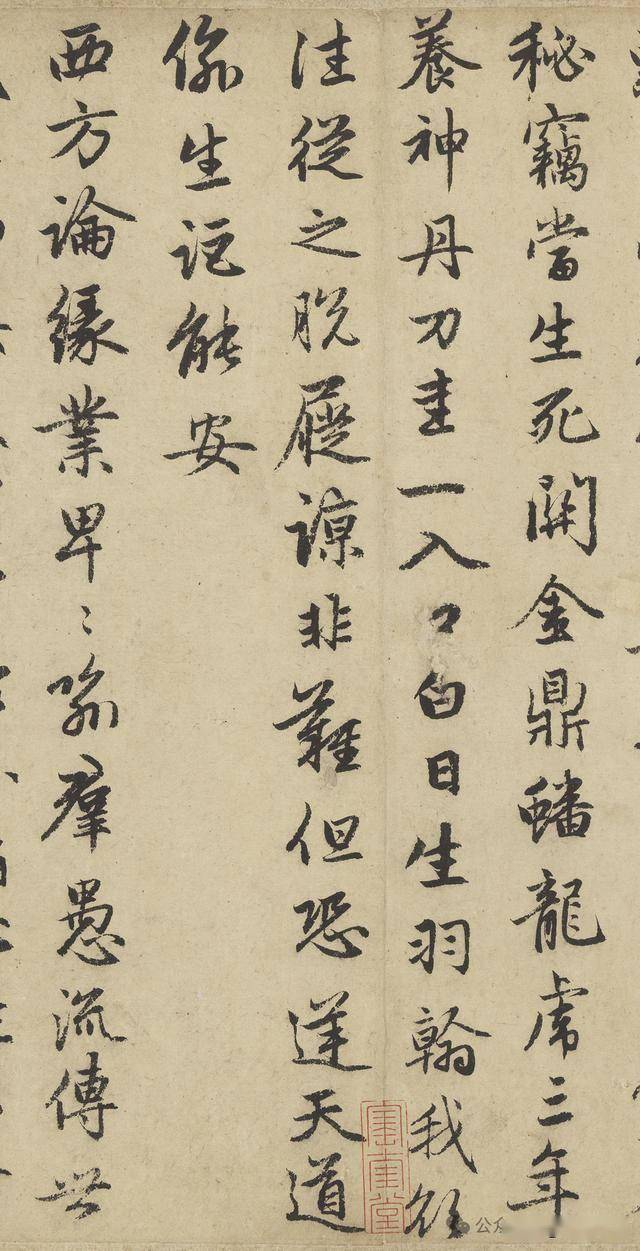 秘竊當生死關金鼎蟠龍虎三年
養神丹刀圭一入口白日生羽翰我欲
往從之脫屣諒非難但恐逆天道
偷生詎能安
西方論緣業卑〻喻羣愚流傳世